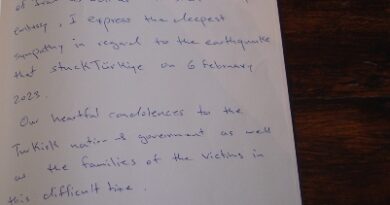 of Iran as well as
embassy, I express the deepest
sympathy in regard to the earthquake
that stuck Türkiye on 6 february
2023.
Our heartful condolences to the
Turkish nation & goverment as well
as the families of the victims in
this difficult time.